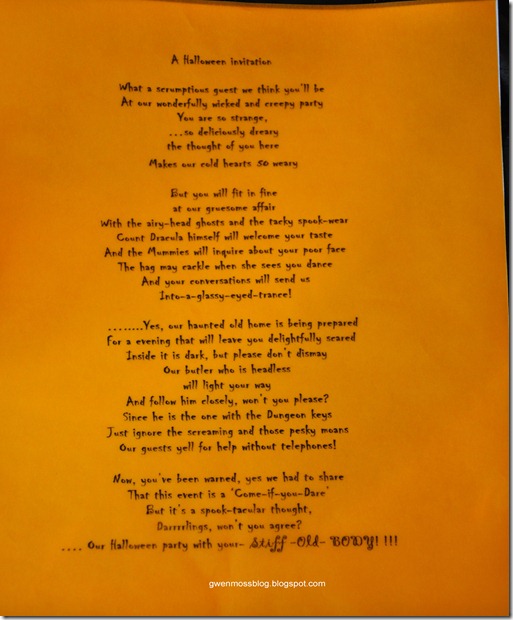 A Halloween invitation
What a scrumptious guest we think you'll be
At our wonderfully wicked and creepy party
You are so strange,
...so deliciously dreary
the thought of you here
Makes our cold hearts SO weary
But you will fit in fine
at our gruesome affair
With the airy-head ghosts and the tacky spook-wear
Count Dracula himself will welcome your taste
And the Mummies will inquire about your poor face
The hag may cackle when she sees you dance
And your conversations will send us
Into-a-glassy-eyed-trance!
........Yes, our haunted old home is being prepared
For a evening that will leave you delightfully scared
Inside it is dark, but please don't dismay
Our butler who is headless
will light your way
And follow him closely, won't you please?
Since he is the one with the Dungeon keys
Just ignore the screaming and those pesky moans
Our guests yell for help without telephones!
Now, you've been warned, yes we had to share
That this event is a 'Come-if-you-Dare'
But it's a spook-tacular thought,
Darrrrlings, won't you agree?
.... Our Halloween party with your- Stiff -Old- BODY! !!!
gwenmossblog.blogspot.com